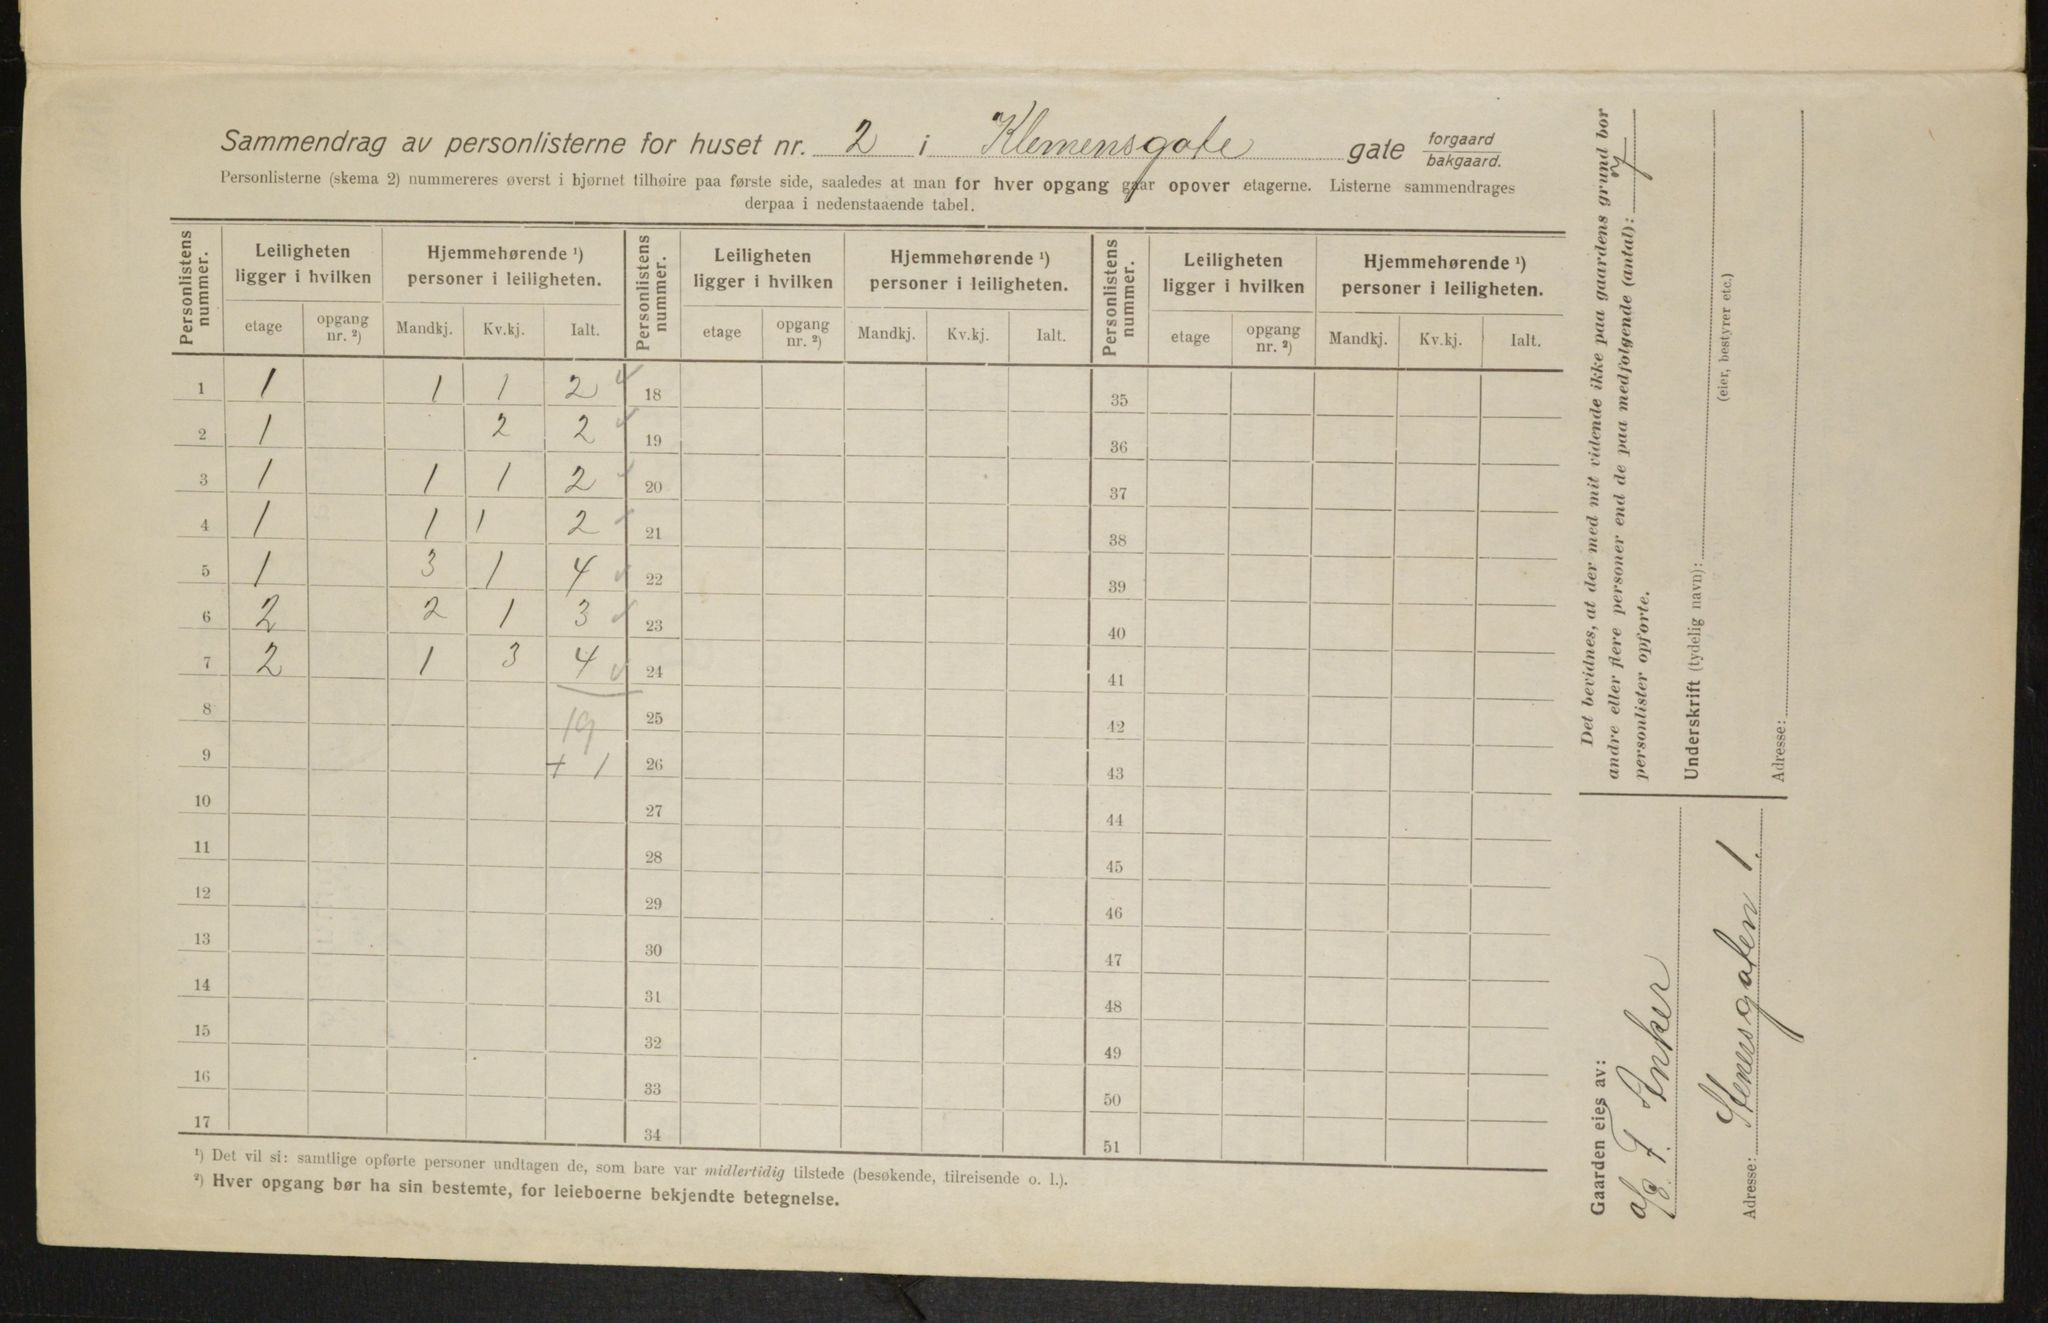 Sammendrag av personlisterne for huset nr. 2 i Klemensgate gate forgaard bakgaard.
Personlisterne (skema 2) nummereres øverst i hjørnet tilhøire paa første side, saaledes at man for hver opgang gaar opover etagerne. Listerne sammendrages
derpaa i nedenstaaende tabel.
Personlistens nummer. Leiligheten ligger i hvilken Hjemmehørende ¹) personer i leiligheten. Personlistens nummer. Leiligheten ligger i hvilken Hjemmehørende ¹) personer i leiligheten. Personlistens nummer. Leiligheten ligger i hvilken Hjemmehørende ¹) personer i leiligheten.
etage opgang nr. ²) Mandkj. Kv.kj. Ialt. etage opgang nr. ²) Mandkj. Kv.kj. Ialt. etage opgang nr. ²) Mandkj. Kv.kj. Ialt.
1 1 1 1 2 18 35
2 1 2 2 19 36
3 1 1 1 2 20 37
4 1 1 1 2 21 38
5 1 3 1 4 22 39
6 2 2 1 3 23 40
7 2 1 3 4 24 41
8 19 25 42
9 + 1 26 43
10 27 44
11 28 45
12 29 46
13 30 47
14 31 48
15 32 49
16 33 50
17 34 51
¹) Det vil si: samtlige opførte personer undtagen de, som bare var midlertidig tilstede (besøkende, tilreisende o. l.).
²) Hver opgang bør ha sin bestemte, for leieboerne bekjendte betegnelse.
Det bevidnes, at der med mit vidende ikke paa gaardens grund bor
andre eller flere personer end de paa medfølgende (antal): 7
personlister opførte.
Underskrift (tydelig navn):
(eier, bestyrer etc.)
Adresse:
Gaarden eies av:
a/s. F. Inker
Adresse: Stenersgaten 1.